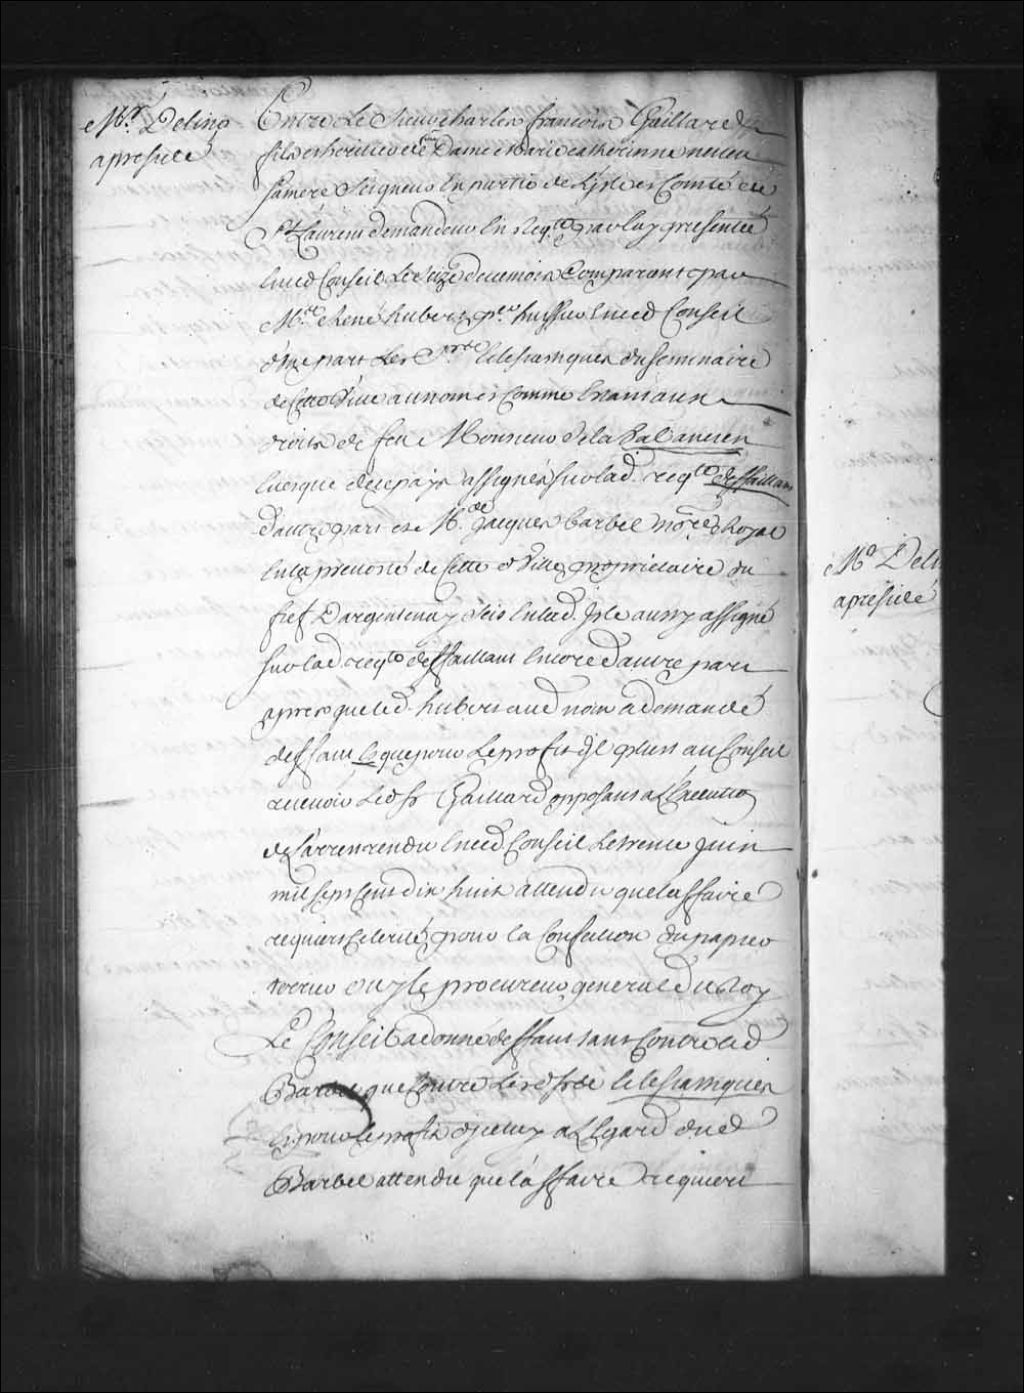 Mr. Delino
apresidé
Entre Le Sieur charles francois Gaillard
fils et heritier de Dame Marie catherinne neveu
sa mere Seigneur En partie de L'isle et Comté de
St Laurens demandeur En Reqte par luy presentée
Enced Conseil Le Seize de ce mois Comparant par
Mtre René hubert pr. huissier Enced Conseil
d'une part Les Srs Eclesiastiques du Seminaire
de Cette Ville au nom et Comme Etant aux
droits de feu Monsieur de la Val ancien
Evesque de ce pays assignés sur lad. reqte deffaillans
dautre part et Me Jacques barbel nore Royal
En la prevosté de Cette Ville proprietaire du
fief Dargentenay Scis En lad. Isle aussy assigné
sur lad reqte deffaillant Encore dautre part
apres que led. hubert aud nom a demandé
deffaut et que pour Le profit Il plust au Conseil
recevoir Led Sr Gaillard opposant a L'Execution
de L'arrest rendu Enced Conseil Le trente Juin
mil Sept Cent dix huit attendu que laffaire
requiert Celerité pour la Confection du papier
terrier ouy le procureur general du Roy
Le Conseil a donné deffaut tant Contre led
Barbel que Contre Lesd Srs Eclesiastiques
Et pour le profit d'iceluy a L'Egard dud
Barbel attendu que laffaire requiert
Mr. Deli
apresidé